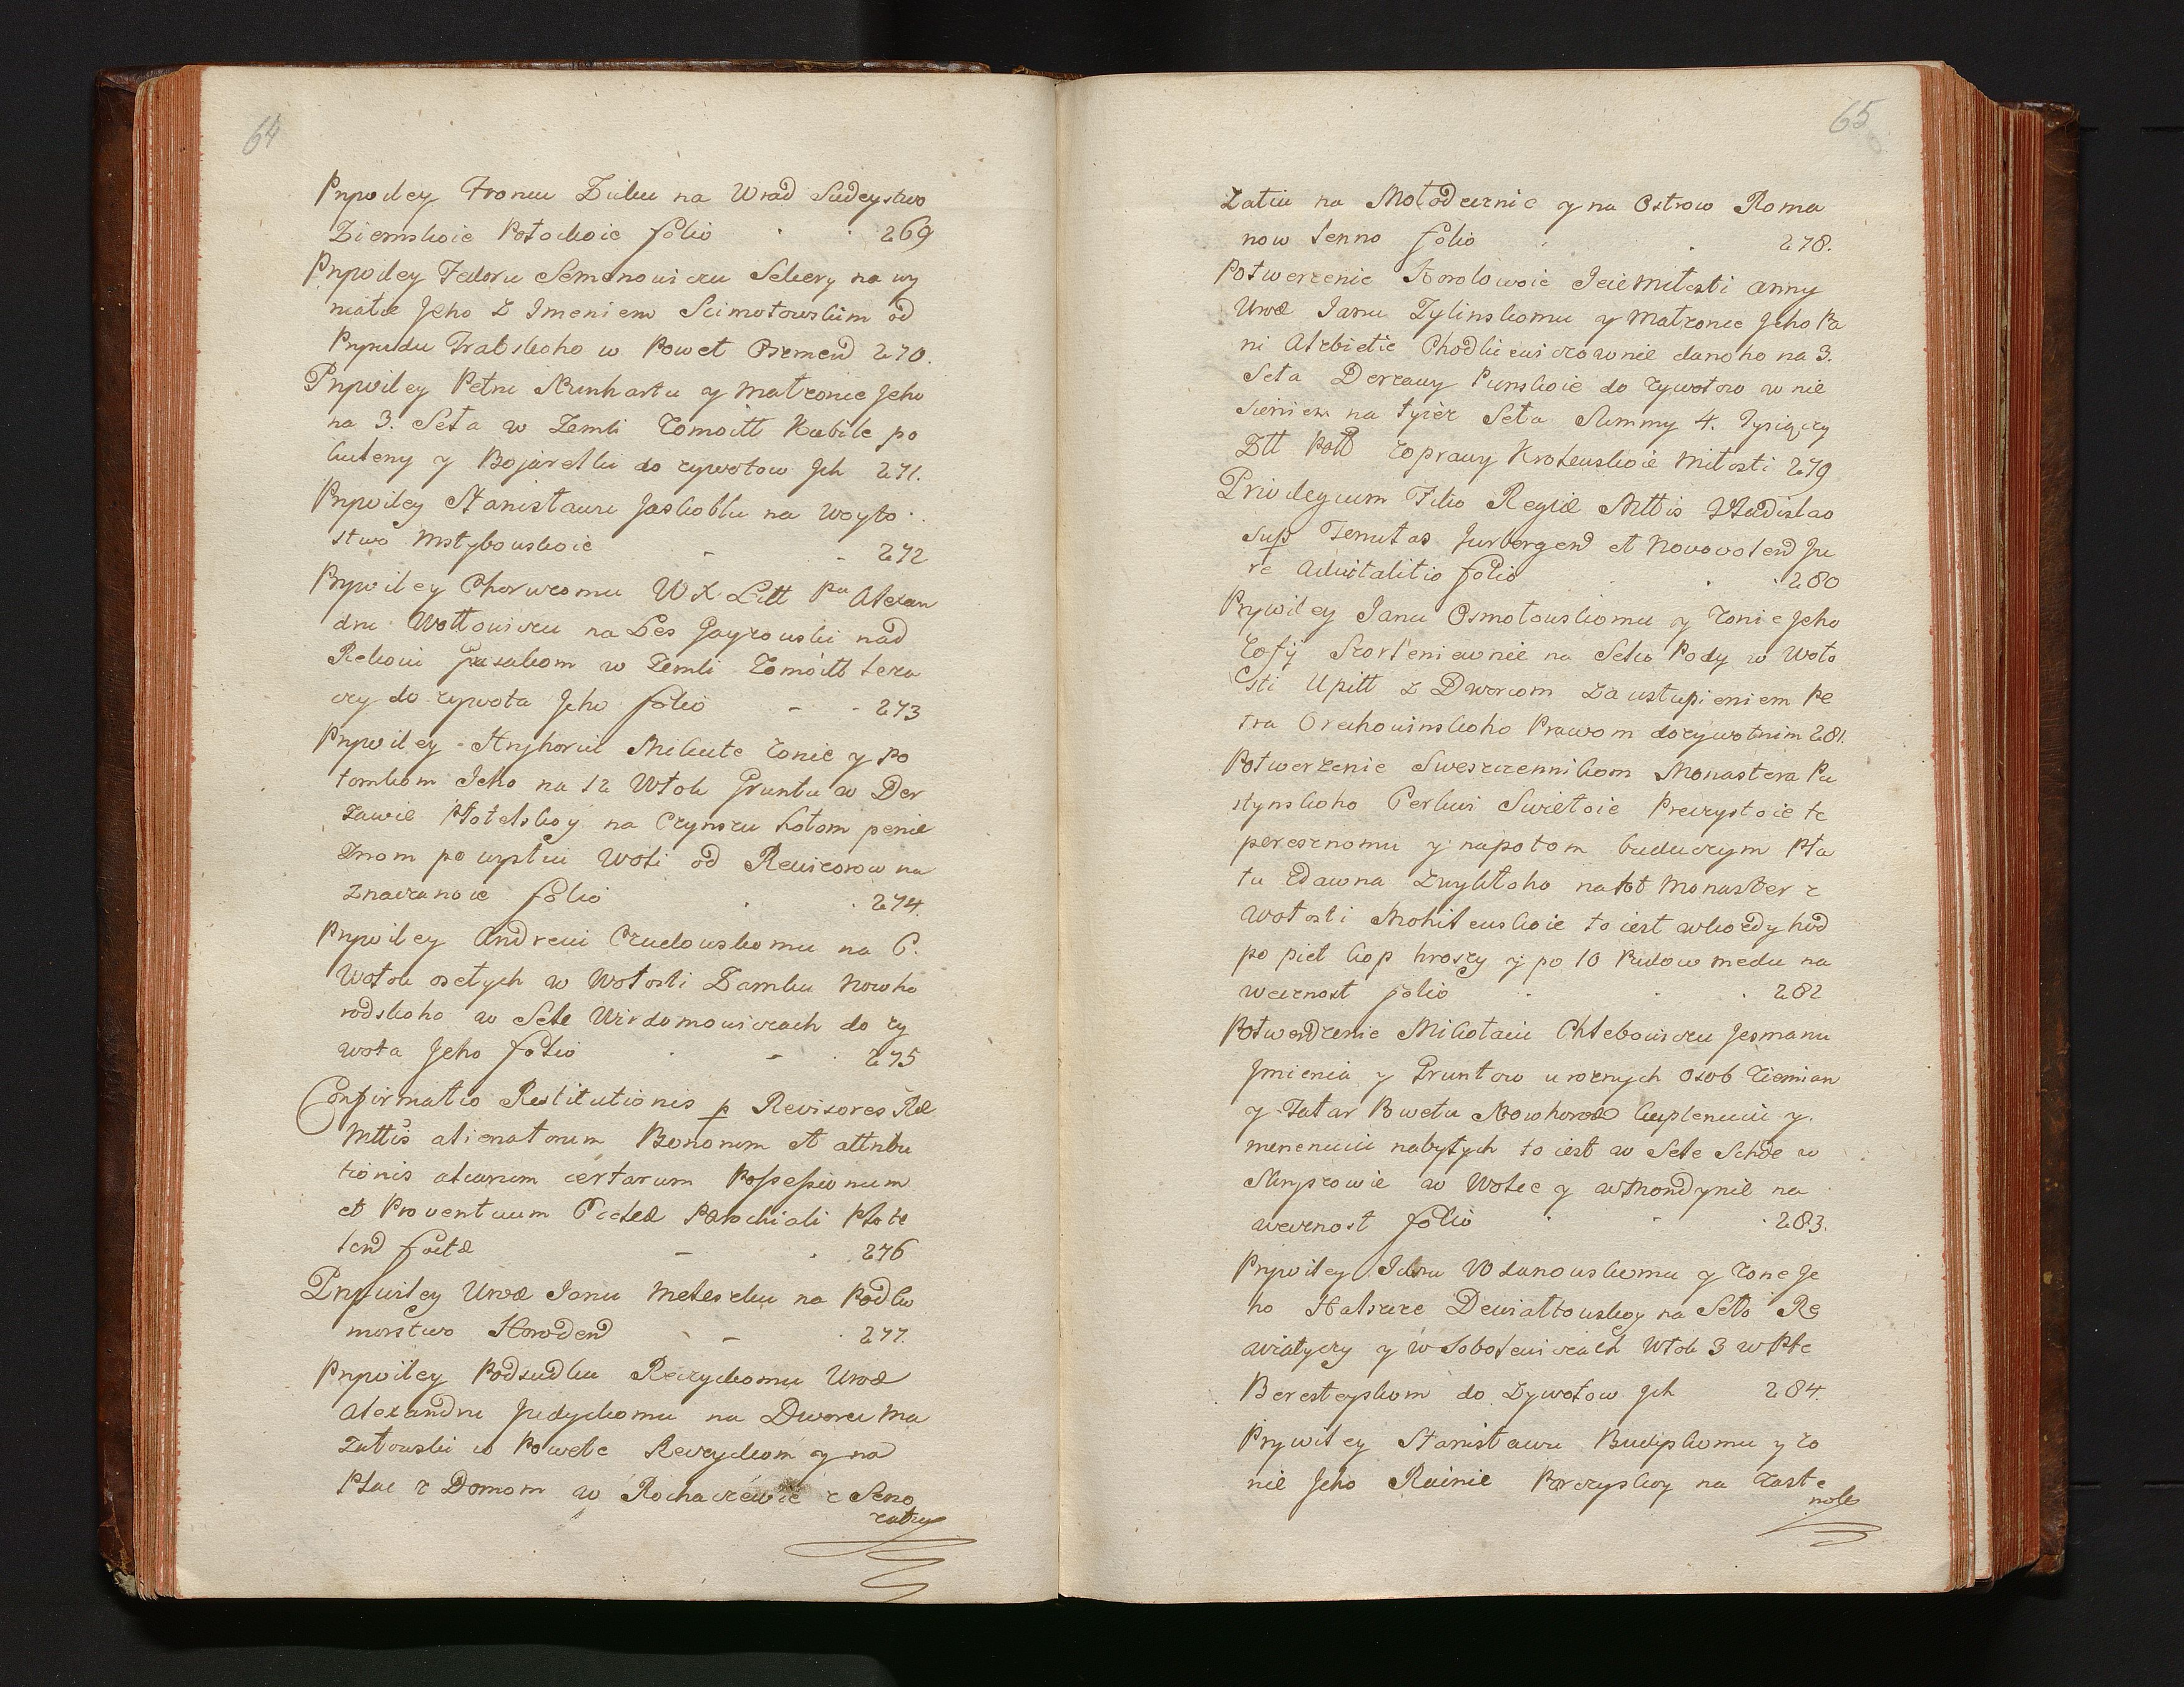 64
Prywiley Froncu Zuku na Urad Sudeystwo
Ziemskoie Połockoie folio 269
Prywiley Fedoru Semenowiczu Sekery na wy
niatie Jeho z Imeniem Scimotowskim od
Prysudu Trabskoho w Powet Oszmend 270.
Prywiley Petru Nunhartu y Małzonce Jeho
na 3. Seła w Zemli Zomoitt Kubile po
kuteny y Bojarelki do zywotow Jch 271.
Prywiley Stanisławu Jaskobku na Woyto
stwo Mstybouskoie 272
Prywiley Choruzomu W X Litt Pu Alexan
dru Wołłowiczu na Les Gayzouski nad
Rekoiu Jusakom w Zemli Zomoitt leza
czy do zywota Jeho folio 273
Prywiley Hryhoriu Mikute zonie y po
tomkom Jeho na 12 Włok Gruntu w Der
zawie Płotelskoy na Czynszu hotom penie
znom po wyszłiu Woli od Rewizorow na
znaczanoie folio 274.
Prywiley Andreiu Czudowskomu na 6.
Włok osełych w Wołosti Zamku Nowho
rodskoho w Sele Wirdomowiczach do zy
wota Jeho folio 275
Confirmatio Restitutionis p Revisores Ræ
Mttis alienatorum Bonorum et attribu
tionis aliarum certarum Possessionum
et Proventuum Eccleæ Parochiali Płote
lend factæ 276
Prywiley Uroæ Janu Meleszku na Podko
morstwo Horodend 277.
Prywiley Podsudku Reczyckomu Uroæ
Alexandru Judyckomu na Dworcu Ma
załowski w Powete Reczyckom y na
Płac z Domom w Rochaczewie z Seno
zatmy
65
zatiu na Mołodecznie y na Ostrow Roma
now Senno folio 278.
Potwerzenie Korolowoie Jeie Miłosti Anny
Uroæ Janu Zylinskomu y Małzonce Jeho Pa
ni Alzbietie Chodkiewiczownie danoho na 3.
Seła Derzawy Punskoie do zywotow w nie
sieniem na tyież Seła Summy 4. Tysięczy
Dtt Poll zoprawy Krolewskoie Miłosti 279
Privilegium Filio Regiæ Mttis Wladislao
Sup Tenutas Jurborgend et Novovolend Ju
re Advitalitio folio 280
Prywiley Janu Osmołouskomu y zonie Jeho
Zofij Skorleniewnie na Seło Pody w Woło
sti Upitt z Dworcom za ustupieniem Pe
tra Orechowinskoho Prawom dozywotnim 281.
Potwerzenie Sweszczennikom Monastera Pu
stynskoho Cerkwi Swietoie Preczystoie te
peresznomu y napotom buduczym Pła
tu zdawna zwykłoho na tot Monaster z
Wołosti Mohilewskoie to iest w kozdy hod
po piet kop hroszy y po 10 Pudow medu na
wecznost folio 282
Potwerdzenie Mikołaiu Chlebowiczu Jesmanu
Jmienia y Gruntow u roznych osob Ziemian
y Tatar Powetu Nowhorod kuplenuiu y
menenuiu nabytych to iest w Sele Schoe w
Skryszowie w Wolce y w Mondynie na
wecznost folio 283.
Prywiley Jidru Wolanouskomu y zone Je
ho Halszce Dewiałtouskoy na Seło Re
wiatyczy y w Sobolewiczach Włok 3 w Pte
Beresteyskom do Zywotow Jch 284.
Prywiley Stanisławu Buczyskomu y zo
nie Jeho Rainie Parczyskoy na zaste
nok